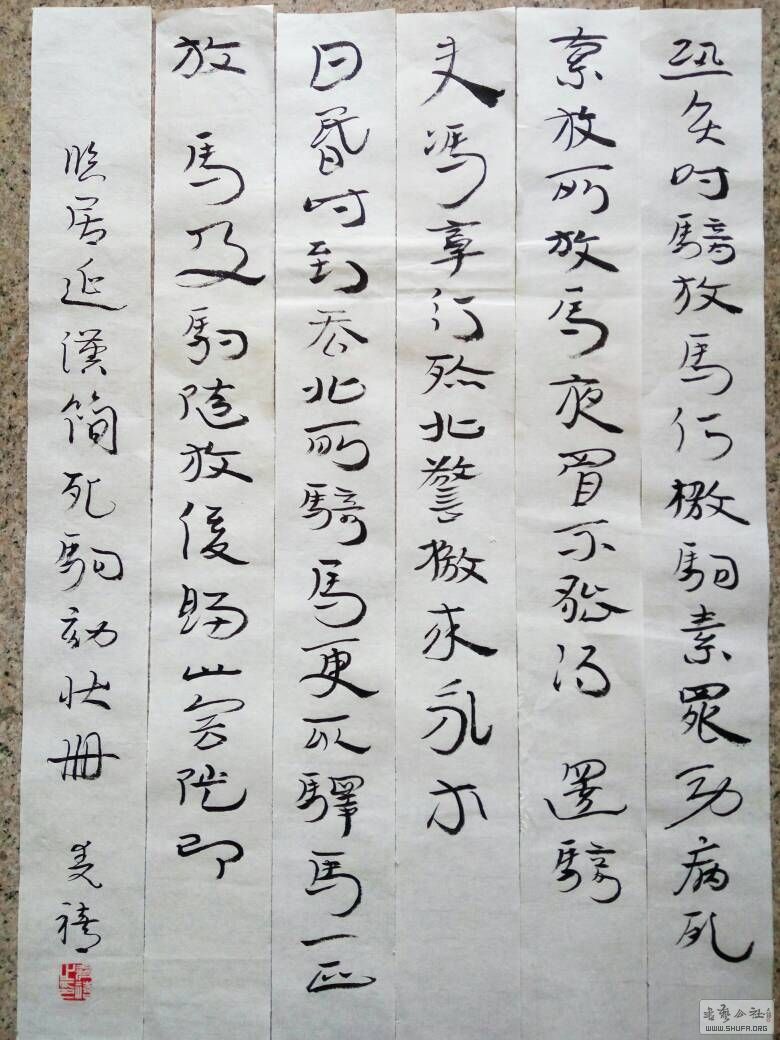 恐負時騎放馬行檄駒素罷勞病死
索放所放馬夜冒不能得 還騎
吏馮章行殄北警檄來永求
日昏時到吞北所騎馬更取驛馬一匹
放 馬及駒隨放後歸止害隧即
臨居延漢簡死駒劾狀冊
禧
書藝公社
WWW.SHUFA.ORG